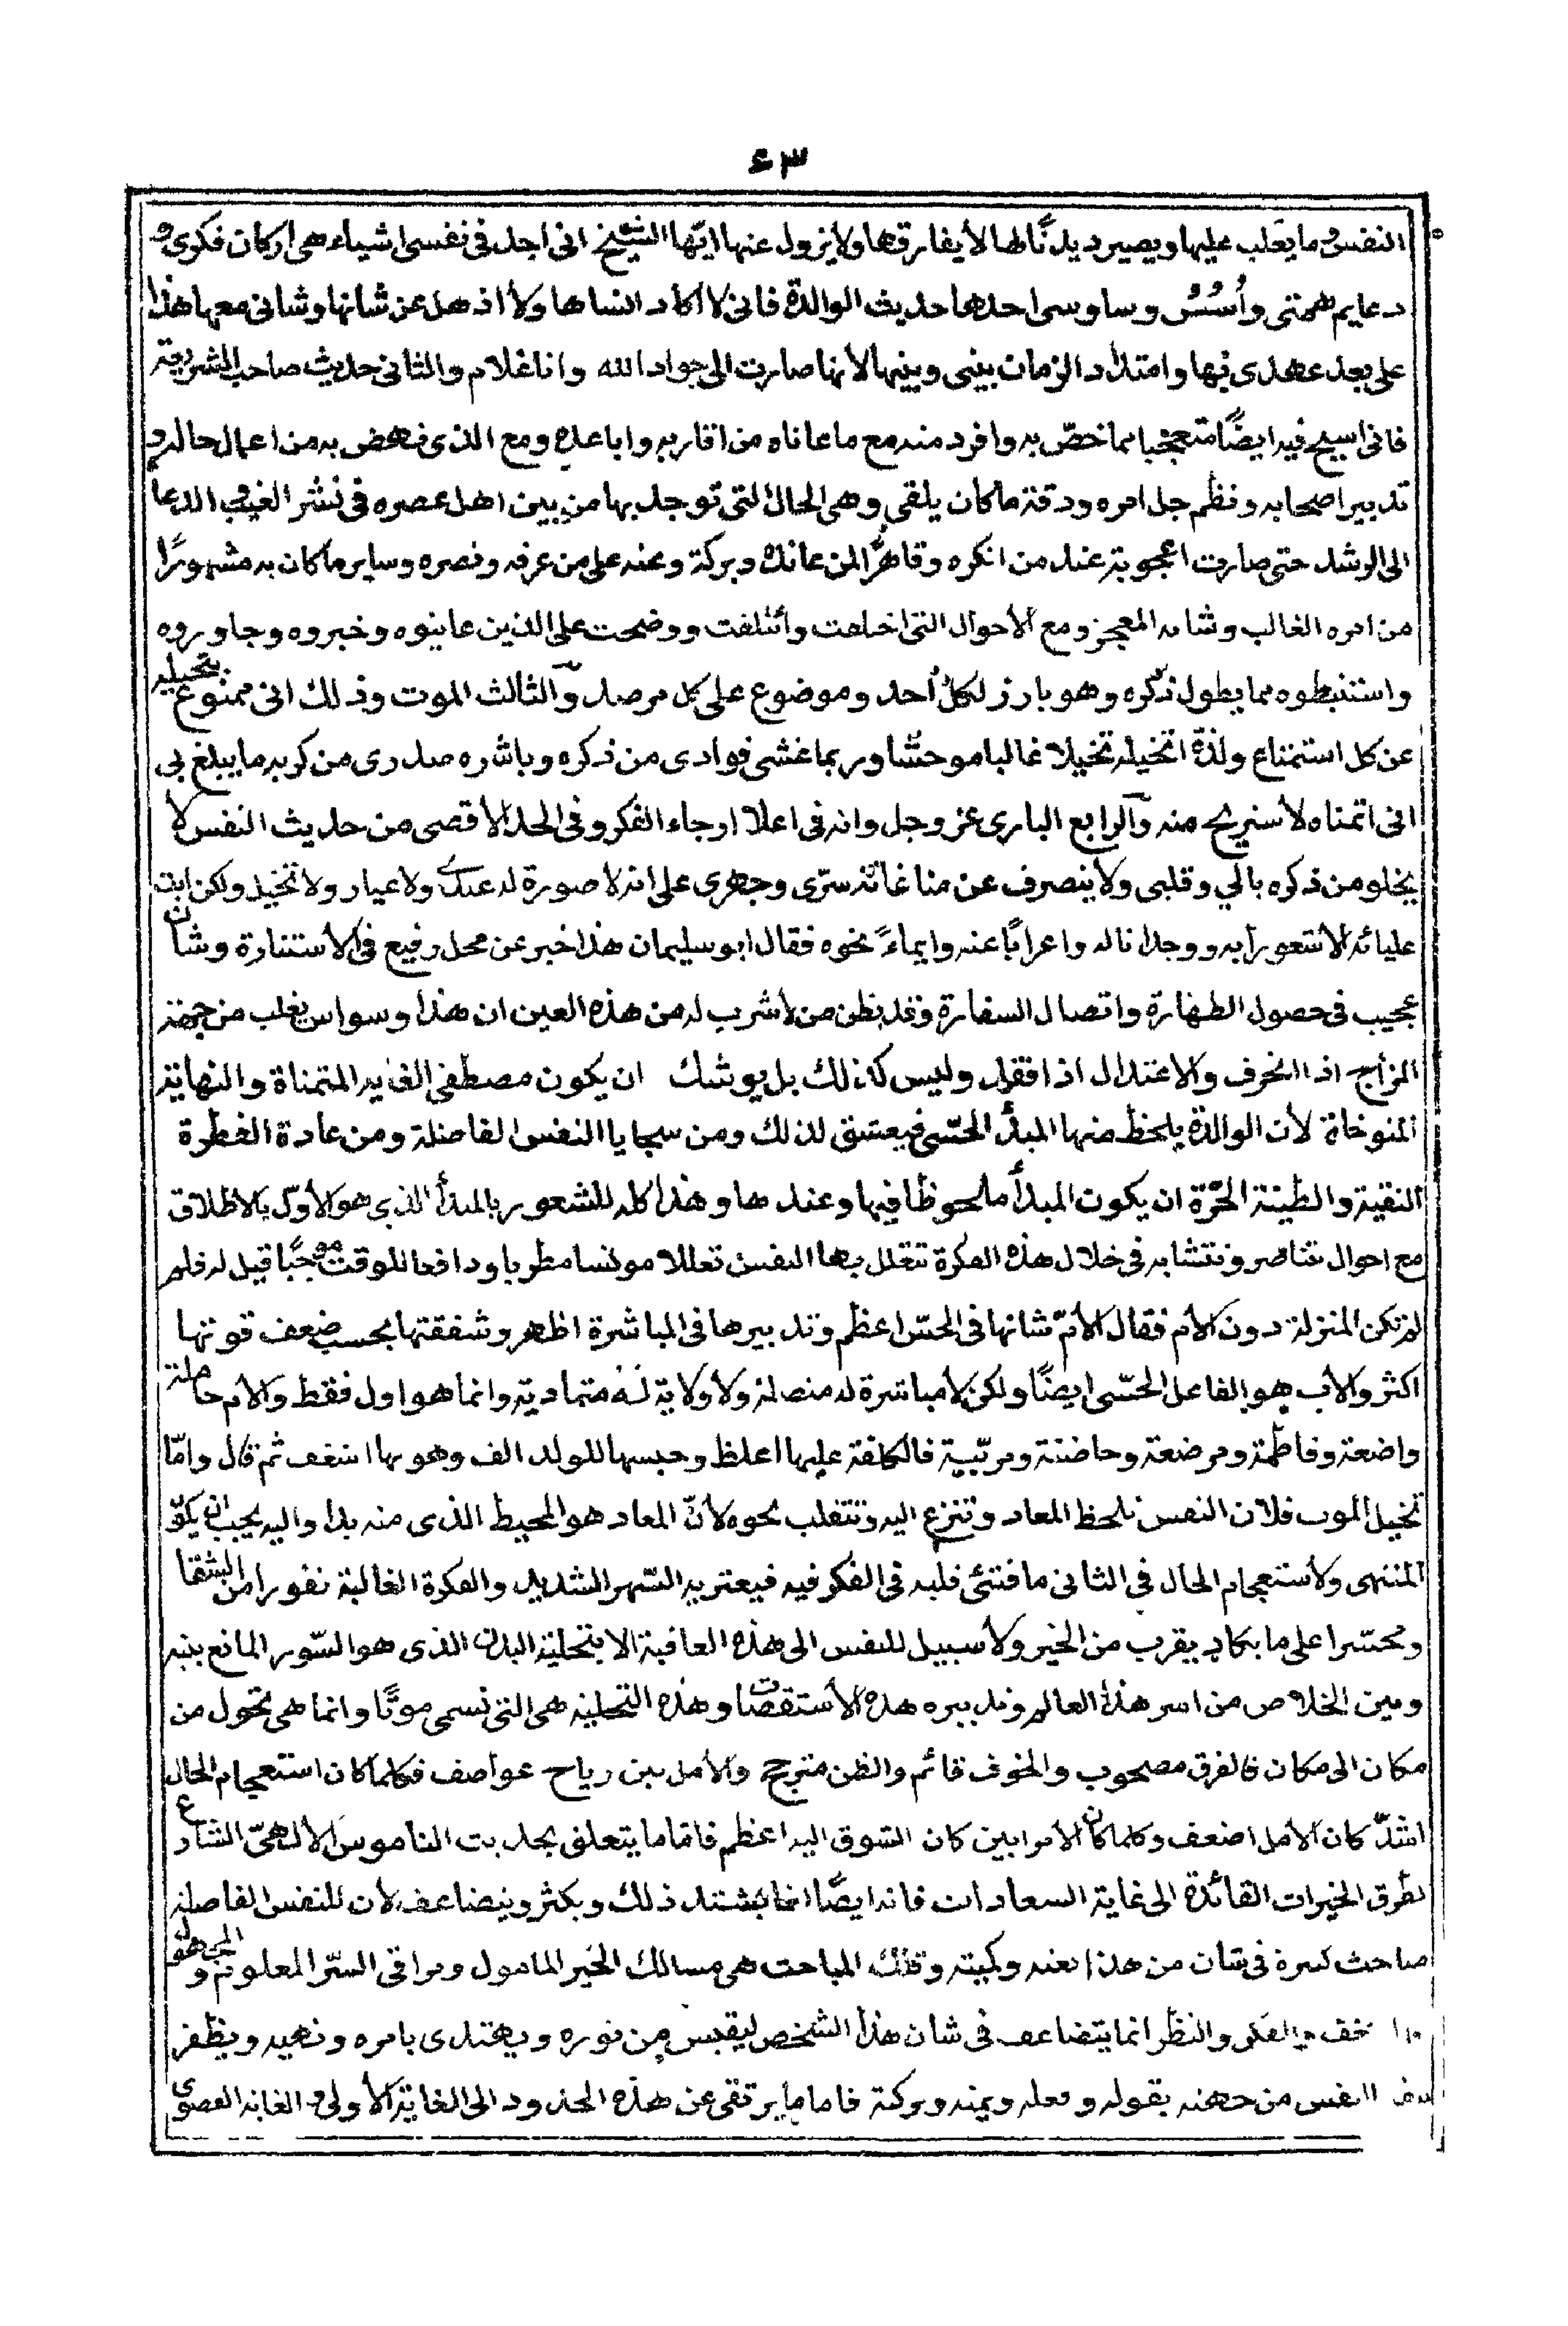 ٣٤
النفس وما يغلب عليها ويصير ديدنًا لها لا يفارقها ولا يزول عنها ايّها الشيخ انى اجد فى نفسى اشياء هى اركان فكرى و
دعايم همتى وأُسُسُ وساوسى احدها حديث الوالدة فانى لا اكاد انساها ولا اذهل عن شانها وشانى معها هذا
على بعد عهدى بها وامتداد الزمان بينى وبينها لانها صارت الى جوار الله وانا غلام والثانى حديث صاحب الشريعة
فانى اسيح فيه ايضًا متعجبا مما خصّ به وافرد منه مع ما عاناه من اقاربه واباعده ومع الذى نهض به من اعمال حاله و
تدبير اصحابه ونظم جل امره ودقة ما كان يلقى وهى الحال التى توحد بها من بين اهل عصره فى نشر الغيب الدعا
الى الرشد حتى صارت اعجوبة عند من انكره وقاهرًا لمن عانده وبركة ومنة على من عرفه ونصره وساير ما كان به مشهورًا
من امره الغالب وشانه المعجز ومع الأحوال التى اختلفت وأئتلفت ووضحت على الذين عاينوه وخبروه وجاوروه
واستنبطوه مما يطول ذكره وهو بارز لكل أحد وموضوع على كل مرصد والثالث الموت وذلك انى ممنوع بتخيله
عن كل استمتاع ولذة اتخيله تخيلا غالبا موحشا وربما غشى فوادى من ذكره وباشره صدرى من كربه ما يبلغ بى
انى اتمناه لأستريح منه والرابع البارى عز وجل وانه فى اعلا ارجاء الفكر وفى الحد الأقصى من حديث النفس لا
يخلو من ذكره بالي وقلبى ولا ينصرف عن مناغاته سرّى وجهرى على انه لا صورة له عندى ولا عيار ولا تخيل ولكن ابت
عليائه الا شعورا به ووجدانا له واعرابًا عنه وايماءً نحوه فقال ابو سليمان هذا خبر عن محل رفيع فى الاستنارة وشان
عجيب فى حصول الطهارة واتصال السفارة وقد يظن من لا شرب له من هذه العين ان هذا وسواس يغلب من جهة
المزاج اذا انحرف والاعتدال اذا فقد وليس كذلك بل يوشك ان يكون مصطفى الغاية المتمناة والنهاية
المتوخاة لأن الوالدة يلحظ منها المبدأ الحسّى فيعشق لذلك ومن سجايا النفس الفاضلة ومن عادة الفطرة
النقية والطينة الحرّة ان يكون المبدأ ملحوظا فيها وعندها وهذا كله للشعور بالمبدأ الذى هو الأوّل بالاطلاق
مع احوال تتناصر وتتشابه فى خلال هذه الفكرة تتعلل بها النفس تعللا مونسا مطربا ودافعا للوقت موجبًا قيل له فلم
لم تكن المنزلة دون الأم فقال الأمّ شانها فى الحسّ اعظم وتدبيرها فى المباشرة اظهر وشفقتها بحسب ضعف قوتها
اكثر والأب هو الفاعل الحسّى ايضًا ولكن لا مباشرة له متصلة ولا ولاية له متمادية وانما هو اول فقط والأم حاملة
واضعة وفاطمة ومرضعة وحاضنة ومربّية فالكلفة عليها اغلظ وحبسها للولد الف وهو بها اشغف ثم قال وامّا
تخيل الموت فلان النفس تلحظ المعاد وتنزع اليه وتتقلب نحوه لأنّ المعاد هو المحيط الذى منه بدا واليه يجب ان يكون
المنتهى ولاستعجام الحال فى الثانى ما فتئى قلبه فى الفكر فيه فيعتريه السّهر الشديد والفكرة الغالبة نفورا من الشقا
وتحسّرا على ما يكاد يقرب من الخير ولا سبيل للنفس الى هذه العاقبة الا بتخلية البدن الذى هو السّور المانع بينه
وبين الخلاص من اسر هذا العالم وتدبيره هذه الأستقصات وهذه التخلية هى التى تسمى موتًا وانما هى تحول من
مكان الى مكان فالفرق مصحوب والخوف قائم والظن مترجح والأمل بين رياح عواصف فكلما كان استعجام الحال
اشدّ كان الأمل اضعف وكلما كان الأمر ابين كان الشوق اليه اعظم فاما ما يتعلق بحديث الناموس الألهىّ الشارع
لطرق الخيرات القائدة الى غاية السعادات فانه ايضًا انما يشتد ذلك ويكثر ويتضاعف لأن للنفس الفاضلة
مباحث كثيرة فى شان من هذا نعته وكميته وتلك المباحث هى مسالك الخير المامول ومراقى السّر المعلوم والمجهول
والفكر والنظر انما يتضاعف فى شان هذا الشخص ليقبس من نوره ويهتدى بامره ونهيه ويظفر
النفس من جهته بقوله وفعله ويمنه وبركة فاما ما يرتقى عن هذه الحدود الى الغاية الأولى والغاية القصوى